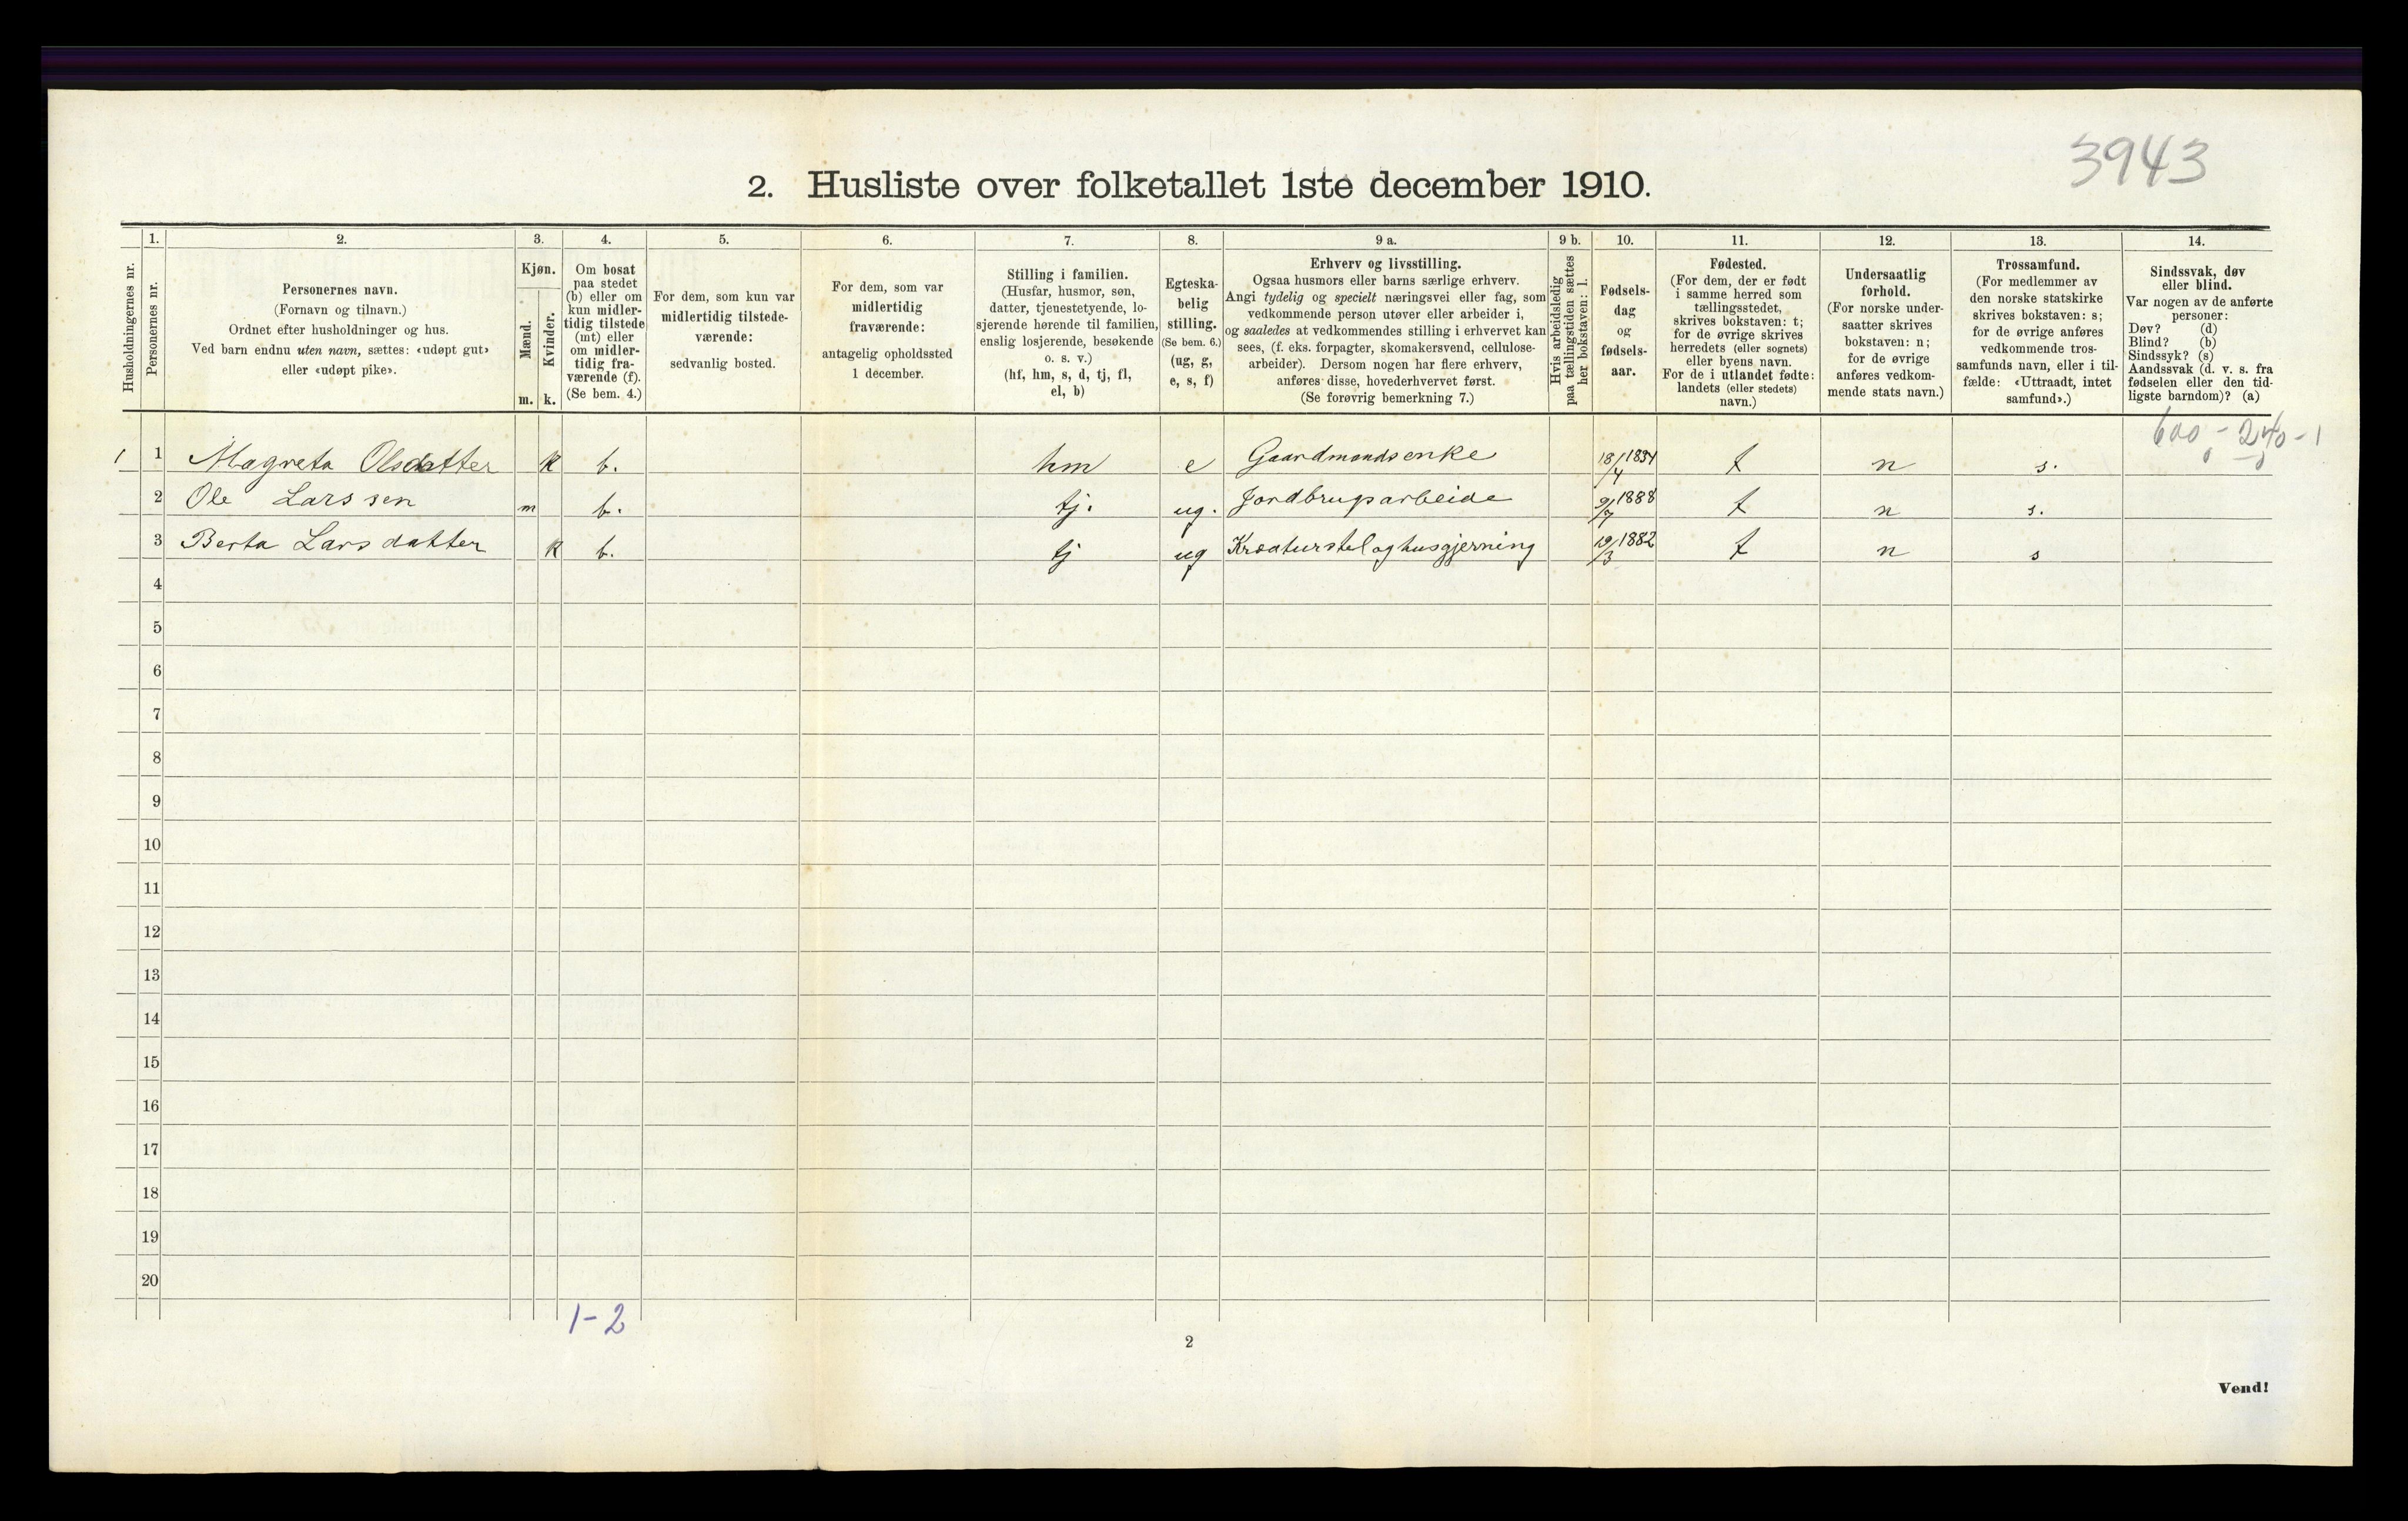 3943
2. Husliste over folketallet 1ste december 1910.
Husholdningernes nr.
1.
Personernes nr.
2.
Personernes navn.
(Fornavn og tilnavn.)
Ordnet efter husholdninger og hus.
Ved barn endnu uten navn, sættes: «udøpt gut»
eller «udøpt pike».
3.
Kjøn.
Mænd.
m.
Kvinder.
k.
4.
Om bosat
paa stedet
(b) eller om
kun midler-
tidig tilstede
(mt) eller
om midler-
tidig fra-
værende (f).
(Se bem. 4.)
5.
For dem, som kun var
midlertidig tilstede-
værende:
sedvanlig bosted.
6.
For dem, som var
midlertidig
fraværende:
antagelig opholdssted
1 december.
7.
Stilling i familien.
(Husfar, husmor, søn,
datter, tjenestetyende, lo-
sjerende hørende til familien,
enslig losjerende, besøkende
o. s. v.)
(hf, hm, s, d, tj, fl,
el, b)
8.
Egteska-
belig
stilling.
(Se bem. 6.)
(ug, g,
e, s, f)
9 a.
Erhverv og livsstilling.
Ogsaa husmors eller barns særlige erhverv.
Angi tydelig og specielt næringsvei eller fag, som
vedkommende person utøver eller arbeider i,
og saaledes at vedkommendes stilling i erhvervet kan
sees, (f. eks. forpagter, skomakersvend, cellulose-
arbeider). Dersom nogen har flere erhverv,
anføres disse, hovederhvervet først.
(Se forøvrig bemerkning 7.)
9 b.
Hvis arbeidsledig
paa tællingstiden sættes
her bokstaven: l.
10.
Fødsels-
dag
og
fødsels-
aar.
11.
Fødested.
(For dem, der er født
i samme herred som
tællingsstedet,
skrives bokstaven: t;
for de øvrige skrives
herredets (eller sognets)
eller byens navn.
For de i utlandet fødte:
landets (eller stedets)
navn.)
12.
Undersaatlig
forhold.
(For norske under-
saatter skrives
bokstaven: n;
for de øvrige
anføres vedkom-
mende stats navn.)
13.
Trossamfund.
(For medlemmer av
den norske statskirke
skrives bokstaven: s;
for de øvrige anføres
vedkommende tros-
samfunds navn, eller i til-
fælde: «Uttraadt, intet
samfund».)
14.
Sindssvak, døv
eller blind.
Var nogen av de anførte
personer:
Døv? (d)
Blind? (b)
Sindssyk? (s)
Aandssvak (d. v. s. fra
fødselen eller den tid-
ligste barndom)? (a)
600 - 240 - 1
0 0
1 1 Magreta Olsdatter k b. hm e Gaardmandsenke 18/4 1834 t n s.
2 Ole Larssen m b. tj. ug. Jordbrugsarbeide 9/7 1888 t n s.
3 Berta Larsdatter k b. tj ug Kreaturstel og husgjerning 19/3 1882 t n s
4
5
6
7
8
9
10
11
12
13
14
15
16
17
18
19
20
1-2
2
Vend!